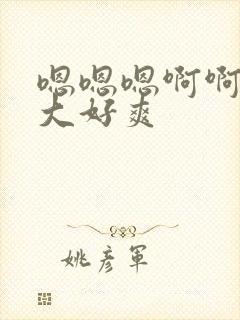 嗯嗯嗯啊啊
大好爽
姚彦军